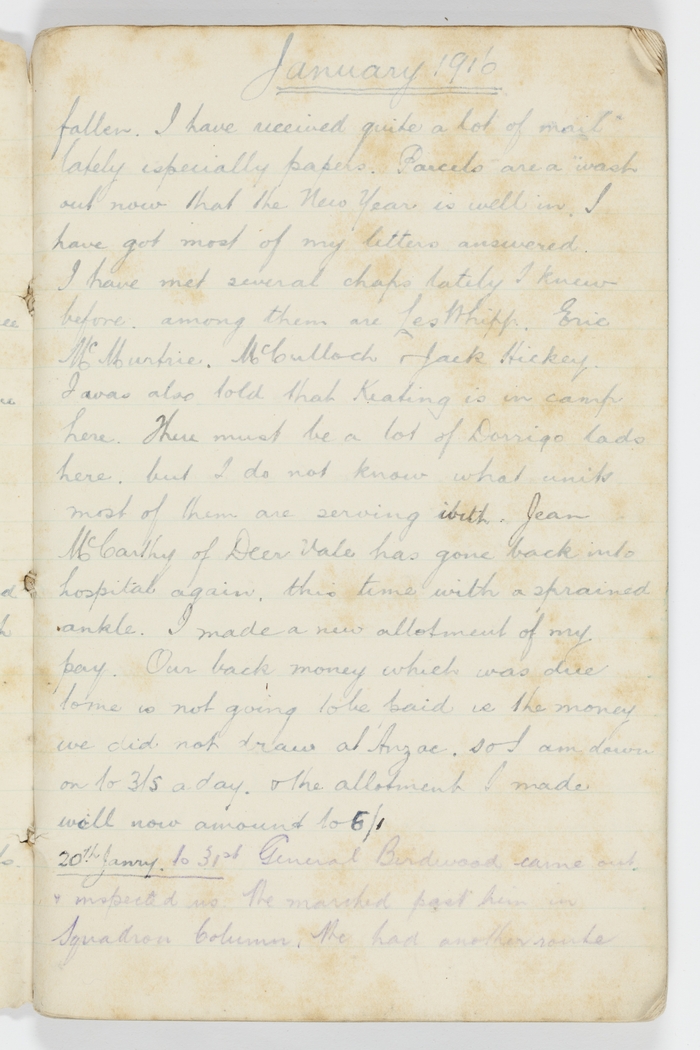 January 1916
fallen. I have received quite a lot of mail
lately especially papers. Parcels are a "wash
out now that the New Year is well in. I
have got most of my letters answered.
I have met several chaps lately I knew
before. among them are Les Whipp. Eric
McMurtrie. McCulloch & Jack Hickey.
I was also told that Keating is in camp
here. There must be a lot of Dorrigo lads
here. but I do not know what units
most of them are serving with. Jean
McCarthy of Deer Vale has gone back into
hospital again. this time with a sprained
ankle. I made a new allotment of my
pay. Our back money which was due
to me is not going to be paid ie the money
we did not draw at Anzac. so I am down
on to 3/5 a day. & the allotment I made
will now amount to 6/1
20th Janry. to 31st General Birdwood came out
& inspected us We marched past him in
Squadron Column. We had another route